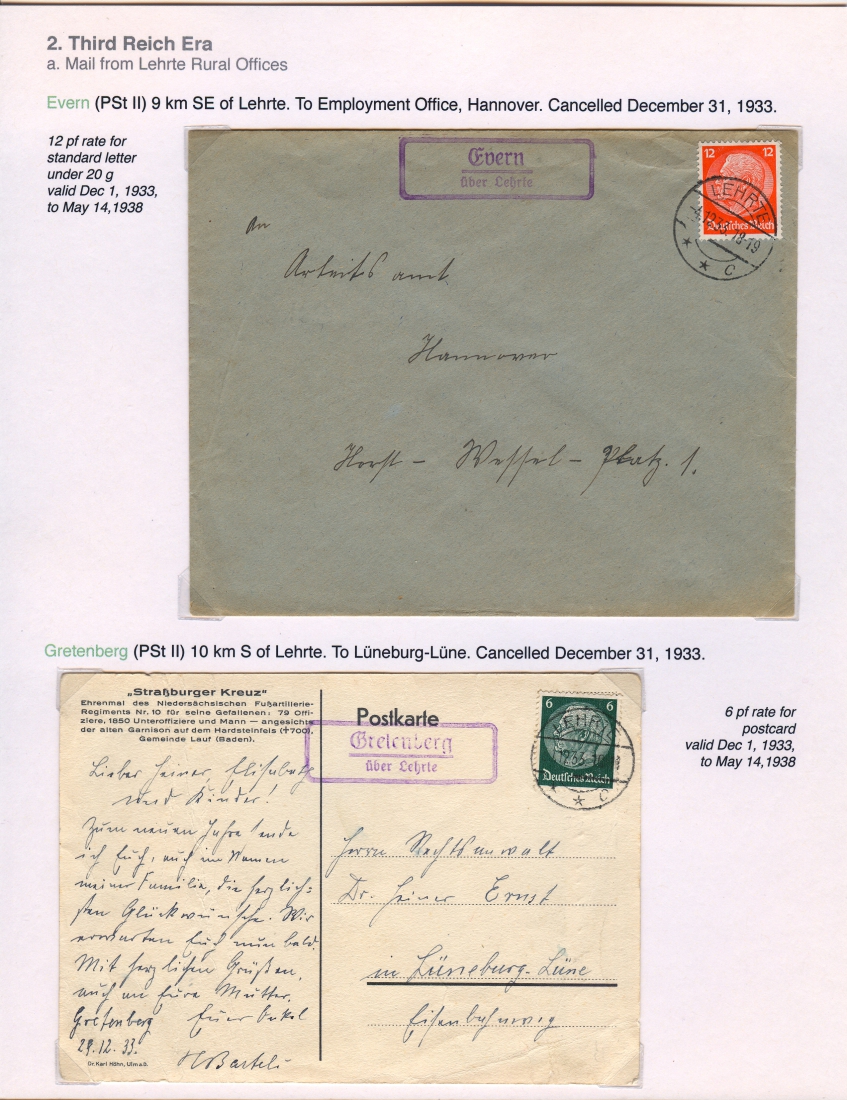 2. Third Reich Era
a. Mail from Lehrte Rural Offices
Evern (PSt II) 9 km SE of Lehrte. To Employment Office, Hannover. Cancelled December 31, 1933.
12 pf rate for
standard letter
under 20 g
valid Dec 1, 1933,
to May 14,1938
Evern
über Lehrte
12 12
Deutsches Reich
LEHRTE
18-19
* * C
An
Arbeitsamt
Hannover
Horst-Wessel-Platz. 1.
Gretenberg (PSt II) 10 km S of Lehrte. To Lüneburg-Lüne. Cancelled December 31, 1933.
6 pf rate for
postcard
valid Dec 1, 1933,
to May 14,1938
„Straßburger Kreuz“
Ehrenmal des Niedersächsischen Fußartillerie-
Regiments Nr. 10 für seine Gefallenen: 79 Offi-
ziere, 1850 Unteroffiziere und Mann — angesichts
der alten Garnison auf dem Hardsteinfels (✝700),
Gemeinde Lauf (Baden).
Postkarte
Gretenberg
über Lehrte
6 6
Deutsches Reich
LEHRTE
* C
Lieber Heiner, Elisabeth
und Kinder!
Zum neuen Jahre sende
ich Euch, auch im Namen
meiner Familie, die herzlich-
sten Glückwünsche. Wir
erwarten Euch nun bald.
Mit herzlichen Grüßen,
auch an Eure Mutter.
Gretenberg Euer Onkel
29.12.33. HBartels
Dr. Karl Höhn, Ulm a.D.
Herrn Rechtsanwalt
Dr. Heiner Ernst
in Lüneburg-Lüne
Eisenbahnweg